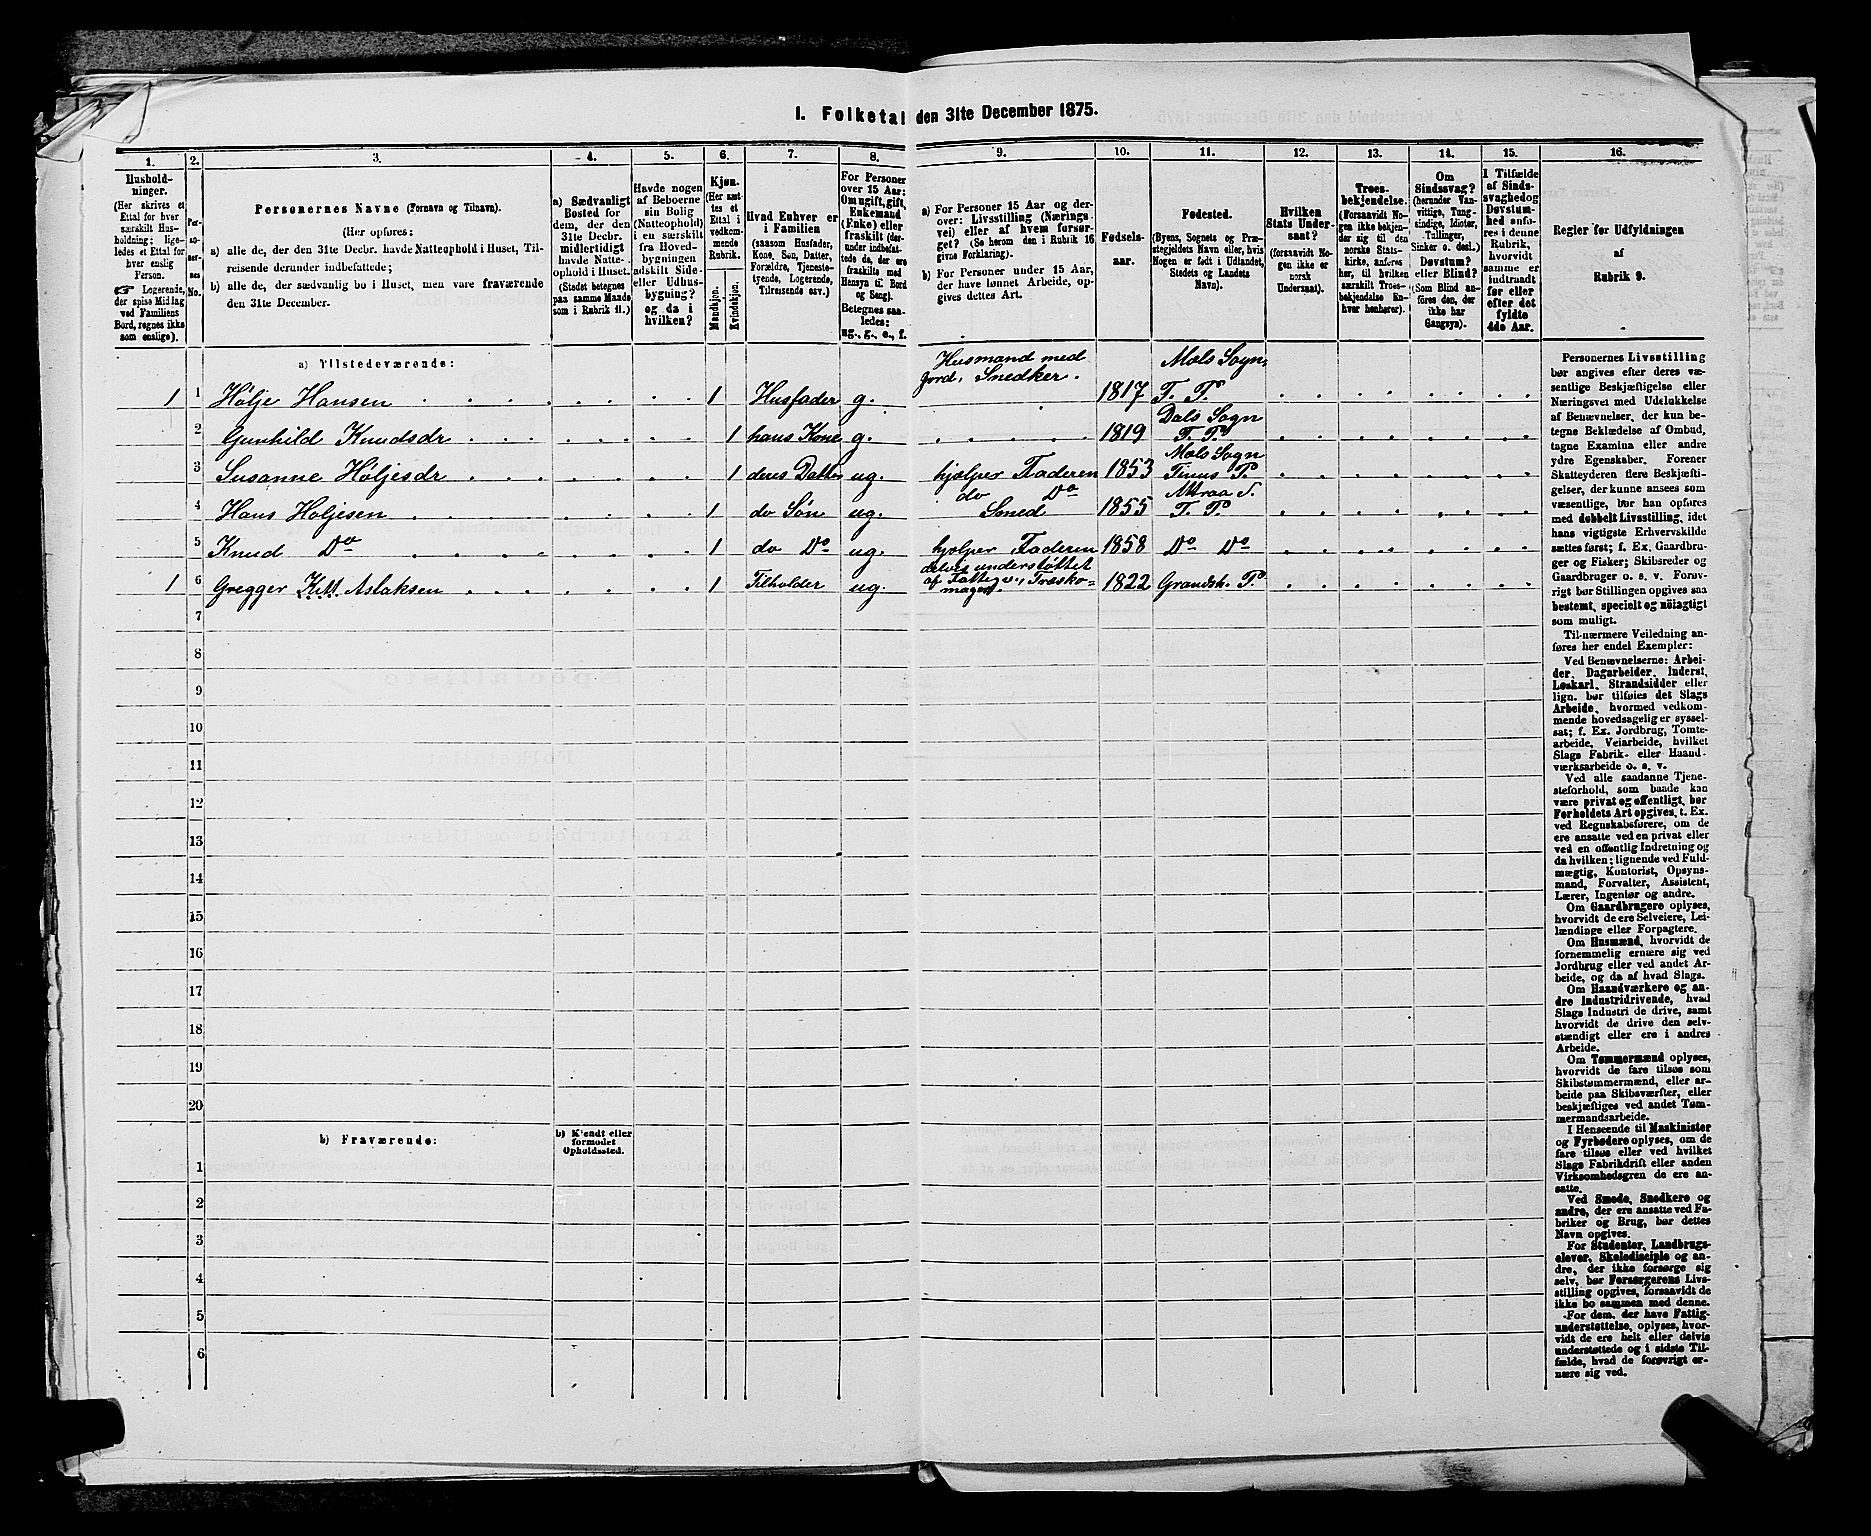 1. Folketal den 31te December 1875.
1. 2. 3. 4. 5. 6. 7. 8. 9. 10. 11. 12. 13. 14. 15. 16.
Hushold-
ninger.
(Her skrives et
Ettal for hver
særskilt Hus-
holdning; lige-
ledes et Ettal for
hver enslig
Person.
☞ Logerende,
der spise Middag
ved Familiens
Bord, regnes ikke
som enslige).
Per-
so-
ner-
nes
No.
Personernes Navne (Fornavn og Tilnavn).
(Her opføres:
a) alle de, der den 31te Decbr. havde Natteophold i Huset, Til-
reisende derunder indbefattede;
b) alle de, der sædvanlig bo i Huset, men vare fraværende
den 31te December.
a) Sædvanligt
Bosted for
dem, der den
31te Decbr.
midlertidigt
havde Natte-
ophold i Huset.
(Stedet betegnes
paa samme Maade
som i Rubrik 11.)
Havde nogen
af Beboerne
sin Bolig
(Natteophold)
i en særskilt
fra Hoved-
bygningen
adskilt Side-
eller Udhus-
bygning?
og da i
hvilken?
Kjøn.
(Her sæt-
tes et
Ettal i
vedkom-
mende
Rubrik.
Mandkjøn.
Kvindekjøn.
Hvad Enhver er
i Familien
(saasom Husfader,
Kone, Søn, Datter,
Forældre, Tjeneste-
tyende, Logerende,
Tilreisende osv.)
For Personer
over 15 Aar:
Om ugift, gift,
Enkemand
(Enke) eller
fraskilt (der-
under indbefat-
tede de, der ere
fraskilte med
Hensyn til Bord
og Seng).
Betegnes saa-
ledes:
ug., g., e., f.
a) For Personer 15 Aar og der-
over: Livsstilling (Nærings-
vei) eller af hvem forsør-
get? (Se herom den i Rubrik 16
givne Forklaring).
b) For Personer under 15 Aar,
der have lønnet Arbeide, op-
gives dettes Art.
Fødsels-
aar.
Fødested.
(Byens, Sognets og Præ-
stegjeldets Navn eller, hvis
Nogen er født i Udlandet,
Stedets og Landets
Navn).
Hvilken
Stats Under-
saat?
(forsaavidt No-
gen ikke er
norsk
Undersaat).
Troes-
bekjendelse.
(Forsaavidt No-
gen ikke bekjen-
der sig til den
norske Stats-
kirke, anføres
her, til hvilken
særskilt Troes-
bekjendelse En-
hver henhører).
Om
Sindssvag?
(herunder Van-
vittige, Tung-
sindige, Idioter,
Tullinger,
Sinker o. desl.)
Døvstum?
eller Blind?
(Som Blind an-
føres den, der
ikke har
Gangsyn).
I Tilfælde
af Sinds-
svaghed og
Døvstum-
hed anfø-
res i denne
Rubrik,
hvorvidt
samme er
indtraadt
før eller
efter det
fyldte
4de Aar.
Regler for Udfyldningen
af
Rubrik 9.
a) Tilstedeværende:
1 1 Hølje Hansen 1 Husfader g. Husmand med Jord, Snedker. 1817 Mæls Sogn, T. P.
2 Gunhild Knudsdr 1 hans Kone g. 1819 Dals Sogn T. P.
3 Susanne Høljesdr 1 deres Datter ug. hjelper Faderen 1853 Mæls Sogn Tinns P.
4 Hans Høljesen 1 do Søn ug. do Do Smed 1855 Attraa S. T. P.
5 Knud Do 1 do Do ug. hjelper Faderen 1858 Do Do
1 6 Gregger Aslaksen 1 Tilholder ug. delvis understøttet af Fattigv., Træskomager. 1822 Gransh. P.
7
8
9
10
11
12
13
14
15
16
17
18
19
20
b) Fraværende:
b) Kjendt eller
formodet
Opholdssted.
1
2
3
4
5
6
Personernes Livsstilling
bør angives efter deres væ-
sentlige Beskjæftigelse eller
Næringsvei med Udelukkelse
af Benævnelser, der kun be-
tegne Beklædelse af Ombud,
tagne Examina eller andre
ydre Egenskaber. Forener
Skatteyderen flere Beskjæfti-
gelser, der kunne ansees som
væsentlige, bør han opføres
med dobbelt Livsstilling, idet
hans vigtigste Erhvervskilde
sættes først; f. Ex. Gaardbru-
ger og Fisker; Skibsreder og
Gaardbruger o. s. v. Forøv-
rigt bør Stillingen opgives saa
bestemt, specielt og nøiagtigt
som muligt.
Til nærmere Veiledning an-
føres her endel Exempler:
Ved Benævnelserne: Arbei-
der, Dagarbeider, Inderst,
Løskarl, Strandsidder eller
lign. bør tilføies det Slags
Arbeide, hvormed vedkom-
mende hovedsagelig er syssel-
sat; f. Ex. Jordbrug, Tomte-
arbeide, Veiarbeide, hvilket
Slags Fabrik- eller Haand-
værksarbeide o. s. v.
Ved alle saadanne Tjene-
steforhold, som baade kan
være privat og offentligt, bør
Forholdets Art opgives, t. Ex.
ved Regnskabsførere, om de
ere ansatte ved en privat eller
ved en offentlig Indretning og
da hvilken; lignende ved Fuld-
mægtig, Kontorist, Opsyns-
mand, Forvalter, Assistent,
Lærer, Ingeniør og andre.
Om Gaardbrugere oplyses,
hvorvidt de ere Selveiere, Lei-
lændinge eller Forpagtere.
Om Husmænd, hvorvidt de
fornemmelig ernære sig ved
Jordbrug eller ved andet Ar-
beide, og da af hvad Slags.
Om Haandværkere og an-
dre Industridrivende, hvad
Slags Industri de drive, samt
hvorvidt de drive den selv-
stændigt eller ere i andres
Arbeide.
Om Tømmermænd oplyses,
hvorvidt de fare tilsøs som
Skibstømmermænd, eller ar-
beide paa Skibsværfter, eller
beskjæftiges ved andet Tøm-
mermandsarbeide.
I Henseende til Maskinister
og Fyrbødere oplyses, om de
fare tilsøs eller ved hvilket
Slags Fabrikdrift eller anden
Virksomhedsgren de ere an-
satte.
Ved Smede, Snedkere og
andre, der ere ansatte ved Fa-
briker og Brug, bør dettes
Navn opgives.
For Studenter, Landbrugs-
elever, Skoledisciple og an-
dre, der ikke forsørge sig
selv, bør Forsørgerens Livs-
stilling opgives, forsaavidt de
ikke bo sammen med denne.
For dem, der have Fattig-
understøttelse, oplyses, hvor-
vidt de ere helt eller delvis
understøttede og i sidste Til-
fælde, hvad de forøvrigt er-
nære sig ved.